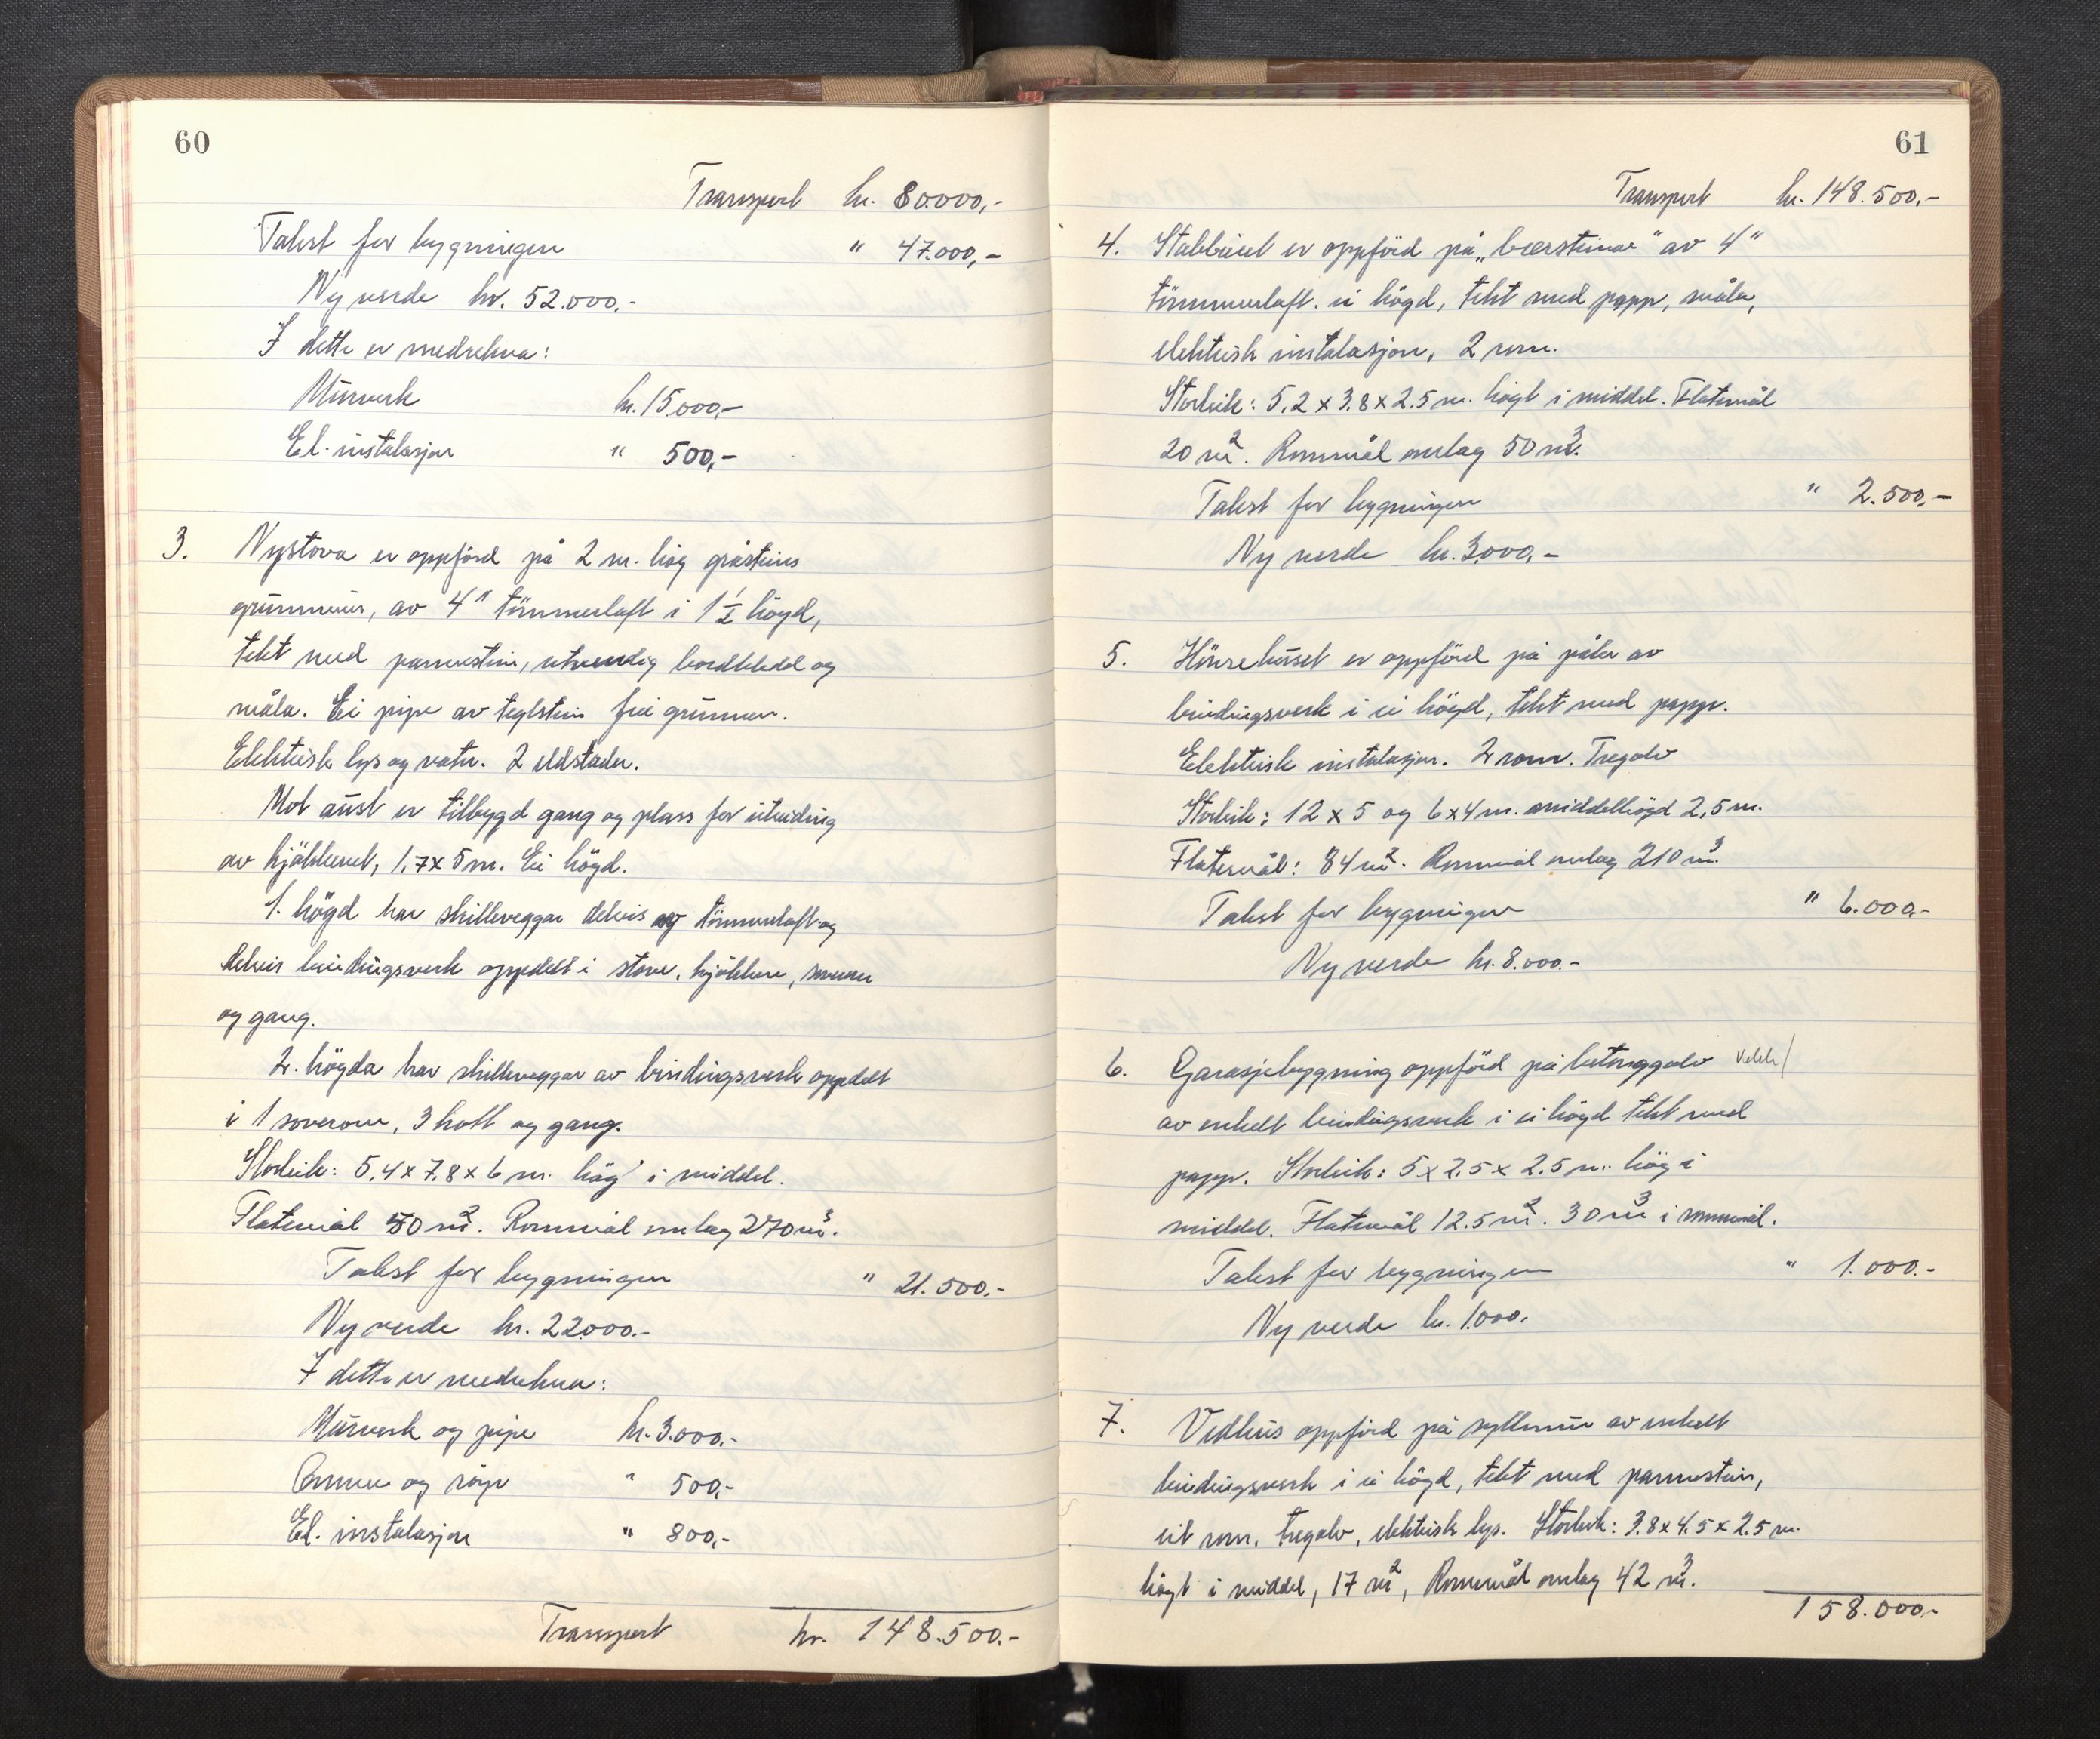 60
Transport kr. 80.000,-
Takst for bygningen " 47.000,-
Ny verde kr. 52.000,-
I dette er medrekna:
Murverk kr. 15.000,-
El. instalasjon " 500,-
3. Nystova er oppförd på 2 m. høg gråsteins
grunnmur, av 4" tömmerlaft i 1 1/2 högd,
tekt med pannestein, utvendig bordkledd og
måla. Ei pipe av teglstein frå grunnen.
Elektrisk lys og vatn. 2 eldstader.
Mot aust er tilbygd gang og plass for utviding
av kjökkenet, 1,7 x 5 m. Ei högd.
1. högd har skilleveggar delvis av tömmerlaft og
delvis bindingsverk oppdelt i stove, kjökken, soverom
og gang.
2. högda har skilleveggar av bindingsverk oppdelt
i 1 soverom, 3 kott og gang.
Storleik: 5,4 x 7,8 x 6 m. høg i middel.
Flatemål 50 m². Rommål omlag 270 m³.
Takst for bygningen " 21.500.-
Ny verde kr. 22000.-
I dette er medrekna:
Murverk og pipe kr. 3.000.-
Omnar og røyr " 500,-
El. instalasjon " 800,-
Transport kr. 148.500.-
61
Transport kr. 148.500,-
4. Stabburet er oppförd på „bærsteinar" av 4"
tömmerlaft. ei högd, tekt med papp, måla,
elektrisk instalasjon, 2 rom.
Storleik: 5,2 x 3,8 x 2.5 m. högt i middel. Flatemål
20 m². Rommål omlag 50 m³.
Takst for bygningen " 2.500,-
Ny verde kr. 3.000,-
5. Hönsehuset er oppförd på pålar av
bindingsverk i ei högd, tekt med papp.
Elektrisk instalasjon. 2 rom. Tregolv
Storleik: 12 x 5 og 6 x 4 m. middelhögd 2,5 m.
Flatemål: 84 m². Rommål omlag 210 m³.
Takst for bygningen " 6.000.-
Ny verde kr. 8.000.-
6. Garasjebygning oppförd på betonggolv
av enkelt bindingsverk i ei högd tekt med
papp. Storleik: 5 x 2,5 x 2.5 m. høg i
middel. Flatemål 12.5 m². 30 m³ i rommål.
Takst for bygningen " 1.000.-
Ny verde kr. 1.000.
7. Vedhus oppförd på syllmur av enkelt
bindingsverk i ei högd, tekt med pannestein,
eit rom, tregolv, elektrisk lys. Storleik: 3.8 x 4.5 x 2.5 m.
høgt i middel, 17 m², Rommål omlag 42 m³.
158.000.-